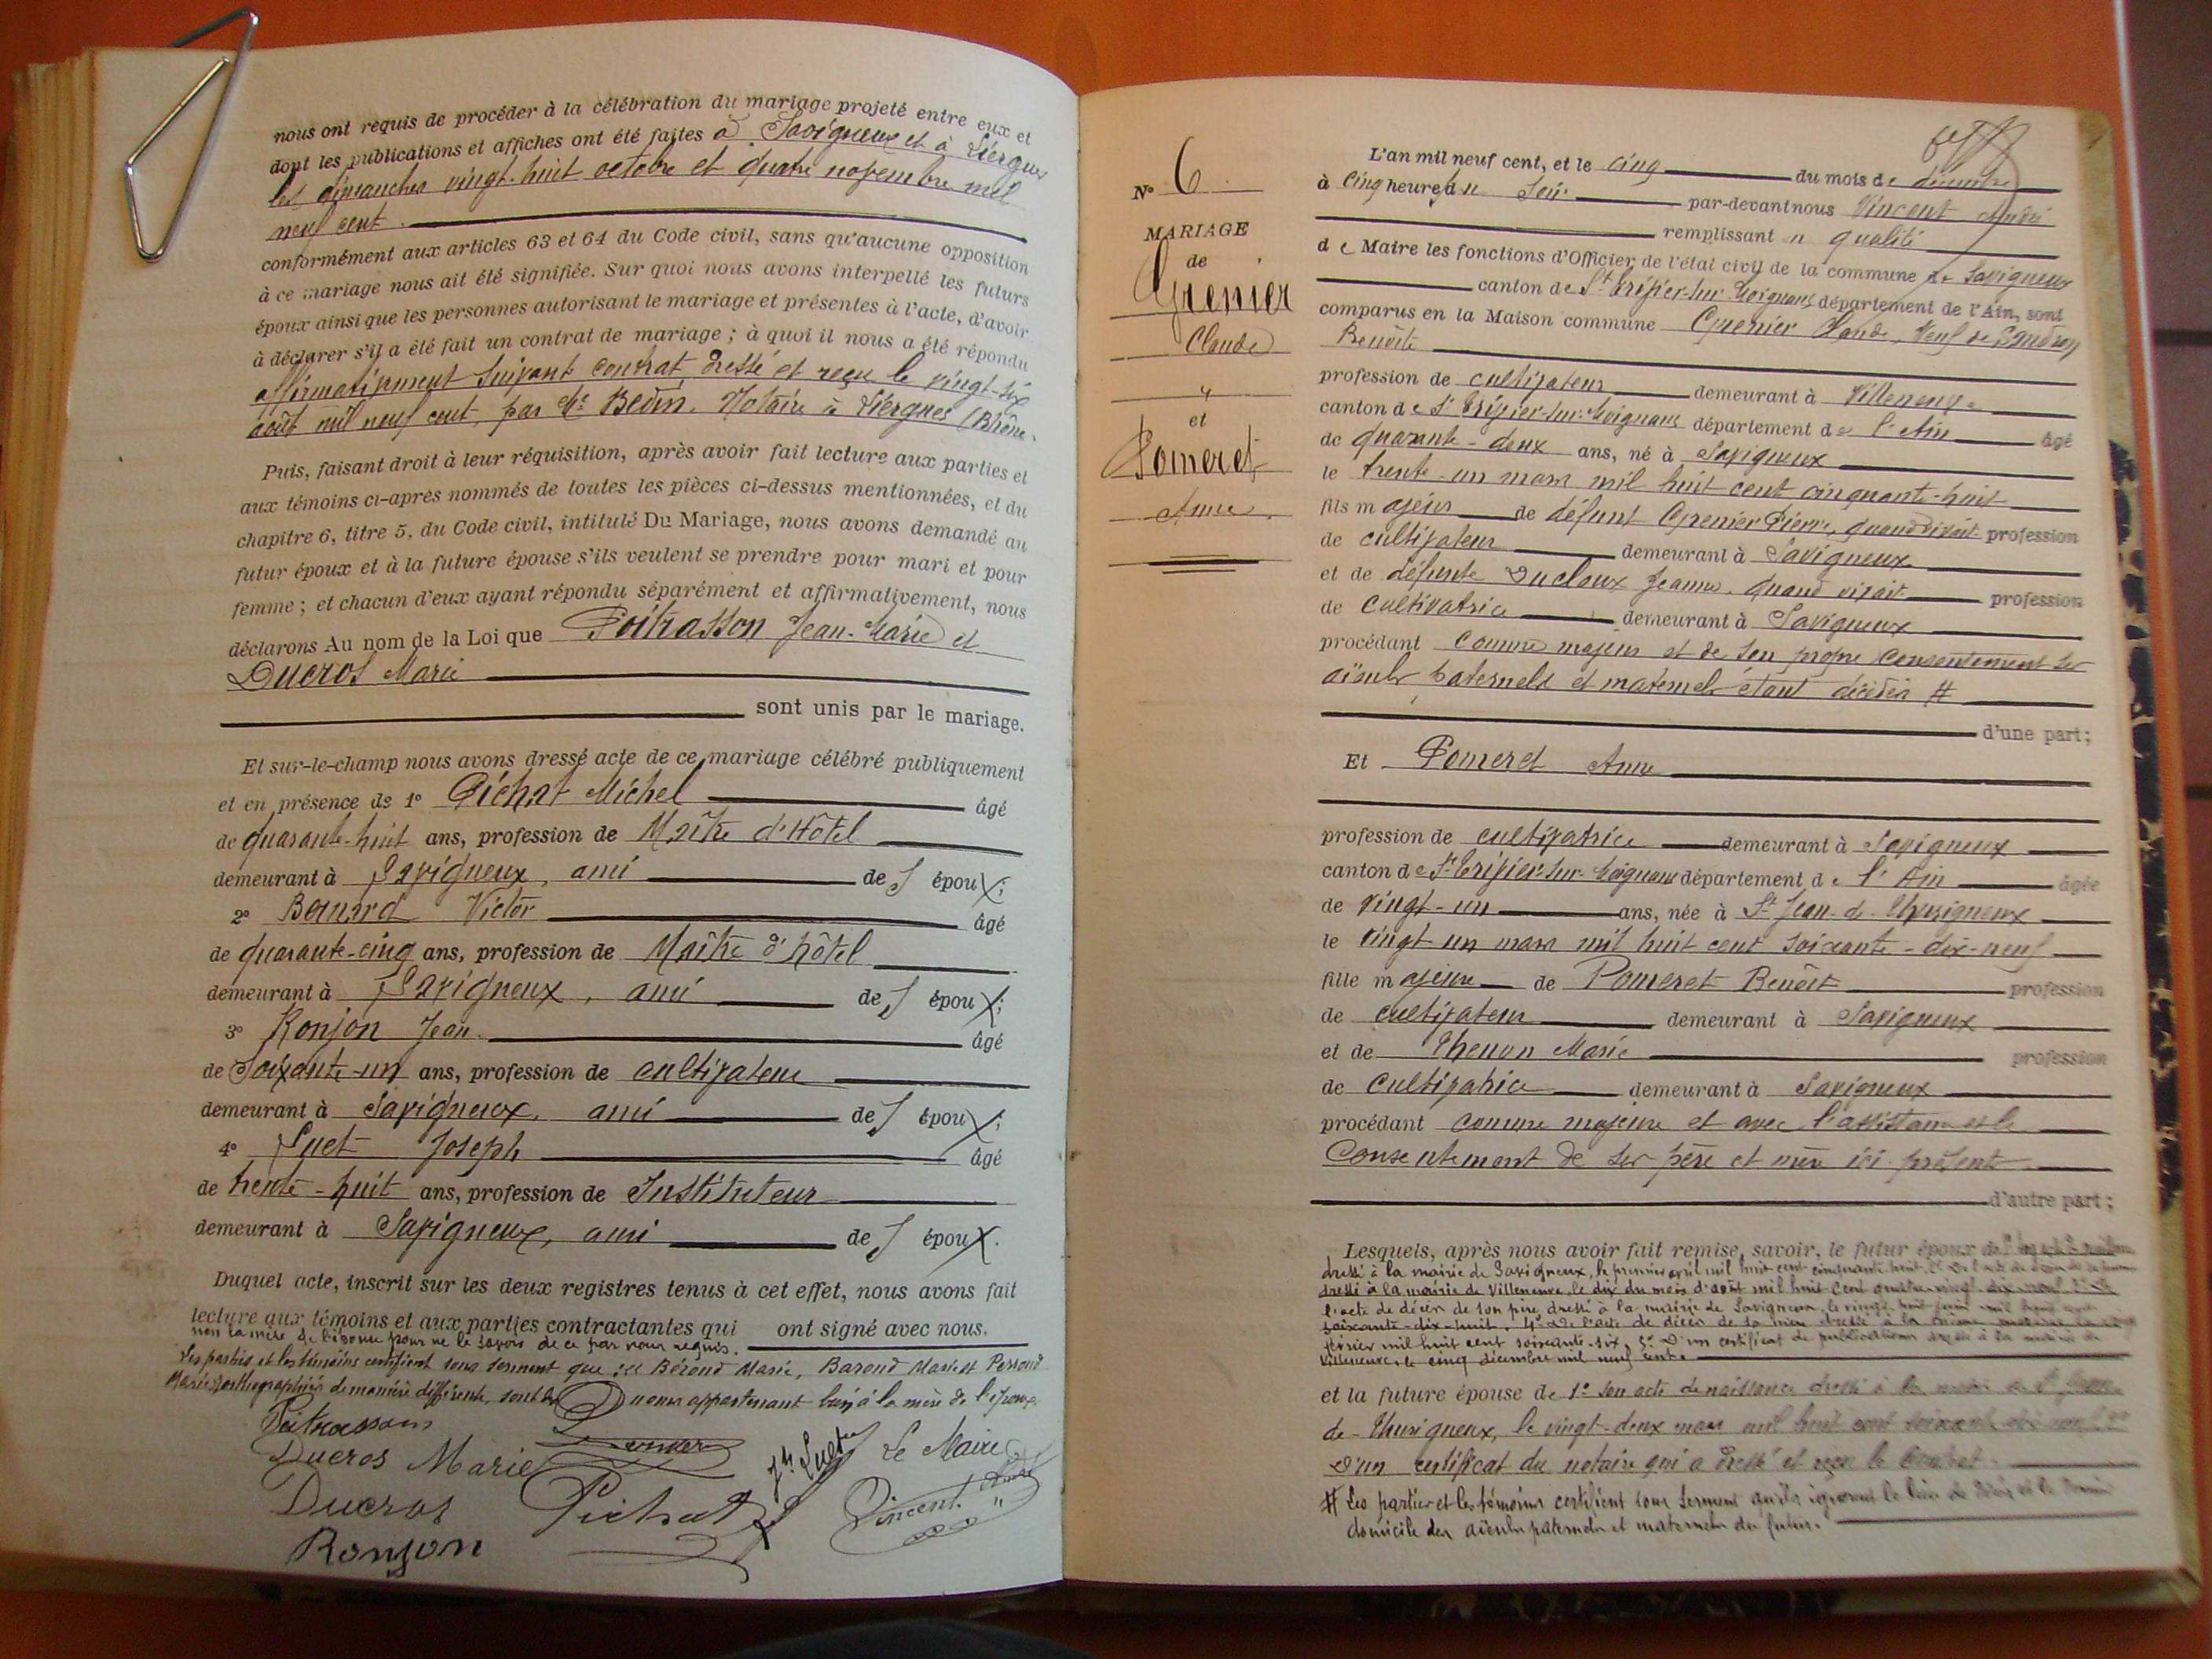 nous ont requis de procéder à la célébration du mariage projeté entre eux et
dont les publications et affiches ont été faites à Savigneux et à Liergues
les dimanches vingt-huit octobre et quatre novembre mil
neuf cent
conformément aux articles 63 et 64 du Code civil, sans qu'aucune opposition
à ce mariage nous ait été signifiée. Sur quoi nous avons interpellé les futurs
époux ainsi que les personnes autorisant le mariage et présentes à l'acte, d'avoir
à déclarer s'il a été fait un contrat de mariage ; à quoi il nous a été répondu
affirmativement suivant contrat dressé et reçu le vingt-six
août mil neuf cent, par Me Bedin, Notaire à Liergues (Rhône.
Puis, faisant droit à leur réquisition, après avoir fait lecture aux parties et
aux témoins ci-après nommés de toutes les pièces ci-dessus mentionnées, et du
chapitre 6, titre 5, du Code civil, intitulé Du Mariage, nous avons demandé au
futur époux et à la future épouse s'ils veulent se prendre pour mari et pour
femme ; et chacun d'eux ayant répondu séparément et affirmativement, nous
déclarons Au nom de la Loi que Poitrasson Jean-Marie et
Ducros Marie
sont unis par le mariage.
Et sur-le-champ nous avons dressé acte de ce mariage célébré publiquement
et en présence de 1° Pichat Michel âgé
de quarante-huit ans, profession de Maître d'Hôtel
demeurant à Savigneux, ami des époux;
2° Benard Victor âgé
de quarante-cinq ans, profession de Maître d'hôtel
demeurant à Savigneux, ami des époux;
3° Ronjon Jean âgé
de Soixante-un ans, profession de cultivateur
demeurant à Savigneux, ami des époux;
4° Suet Joseph âgé
de trente-huit ans, profession de Instituteur
demeurant à Savigneux, ami des époux.
Duquel acte, inscrit sur les deux registres tenus à cet effet, nous avons fait
lecture aux témoins et aux parties contractantes qui ont signé avec nous.
non la mère de l'épouse pour ne le savoir de ce par nous requis.
Les parties et les témoins certifient sous serment que Bérond Marie, Barond Marie et Perrond
Marie, orthographiés de manière différente, sont appartenant bien à la mère de l'épouse
Poitrasson
Ducros Marie
Jh Suet
Le Maire
Ducros
Pichat
Vincent André
Ronjon
N° 6
MARIAGE
de
Grenier
Claude
et
Pomeret
Anne
L'an mil neuf cent, et le cinq du mois de décembre
à cinq heures du soir par-devant nous Vincent André
remplissant en qualité
de Maire les fonctions d'Officier de l'état civil de la commune de Savigneux
canton de St Trivier-sur-Moignans département de l'Ain, sont
comparus en la Maison commune Grenier Claude, Veuf de
Benoîte
profession de cultivateur demeurant à Villeneuve
canton de St Trivier-sur-Moignans département de l'Ain âgé
de quarante-deux ans, né à Savigneux
le trente-un mars mil huit cent cinquante-huit
fils majeur de défunt Grenier Pierre, quand vivait profession
de cultivateur demeurant à Savigneux
et de défunte Ducloux Jeanne, quand vivait profession
de cultivatrice demeurant à Savigneux
procédant comme majeur et de son propre consentement ses
aïeuls paternels et maternels étant décédés #
d'une part;
Et Pomeret Anne
profession de cultivatrice demeurant à Savigneux
canton de St Trivier-sur-Moignans département de l'Ain âgée
de vingt-un ans, née à St Jean-de-Thurigneux
le vingt un mars mil huit cent soixante-dix-neuf
fille majeure de Pomeret Benoît profession
de cultivateur demeurant à Savigneux
et de Thenon Marie profession
de cultivatrice demeurant à Savigneux
procédant comme majeure et avec l'assistance et le
Consentement de ses père et mère ici présents
d'autre part ;
Lesquels, après nous avoir fait remise, savoir, le futur époux de 1°
dressé à la mairie de Savigneux, le premier avril mil huit cent cinquante huit, 2° de l'acte de décès de sa
dressé à la mairie de Villeneuve, le dix du mois d'août mil huit cent quatre-vingt-dix-neuf 3° De
l'acte de décès de son père dressé à la mairie de Savigneux, le vingt-huit juin mil huit cent
soixante-dix-huit, 4° de l'acte de décès de sa mère dressé à la
février mil huit cent soixante-six, 5° D'un certificat de publications dressé à la mairie de
Villeneuve, le cinq décembre mil neuf cent.
et la future épouse de 1° son acte de naissance dressé à la mairie de St Jean
de-Thurigneux, le vingt-deux mars mil huit cent soixante dix-neuf 2°
D'un certificat du notaire qui a dressé et reçu le Contrat.
# Les parties et les témoins certifient sous serment qu'ils ignorent le lieu du décès et le dernier
domicile des aïeuls paternels et maternels du futur.